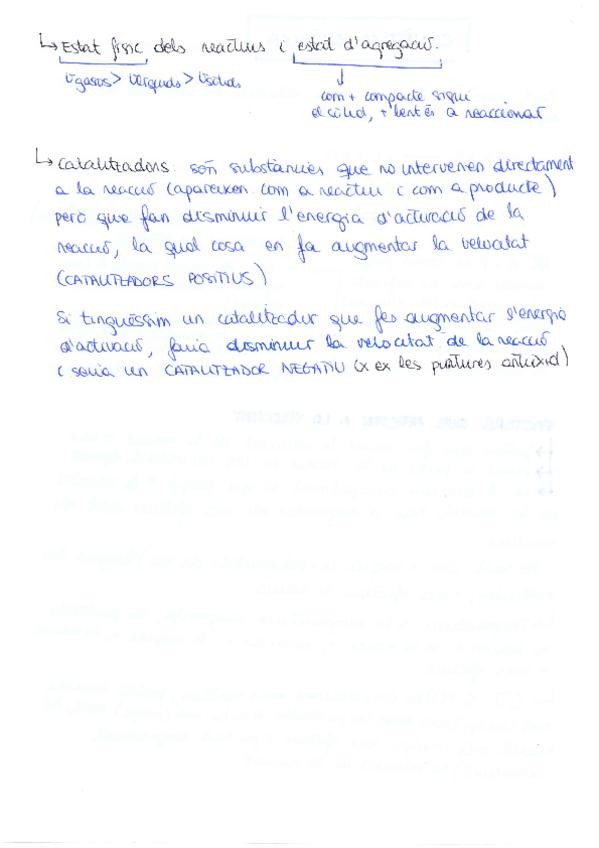 ↳ Estat físic dels reactius i estat d'agregació.
Vgasos > Vlíquids > Vsòlids
com + compacte sigui
el sòlid, + lent és a reaccionar
↳ Catalitzadors: són substàncies que no intervenen directament
a la reacció (apareixen com a reactiu i com a producte)
però que fan disminuir l'energia d'activació de la
reacció, la qual cosa en fa augmentar la velocitat
(CATALITZADORS POSITIUS)
Si tinguéssim un catalitzador que fes augmentar l'energia
d'activació, faria disminuir la velocitat de la reacció
i seria un CATALITZADOR NEGATIU (x ex les pintures antiòxid)